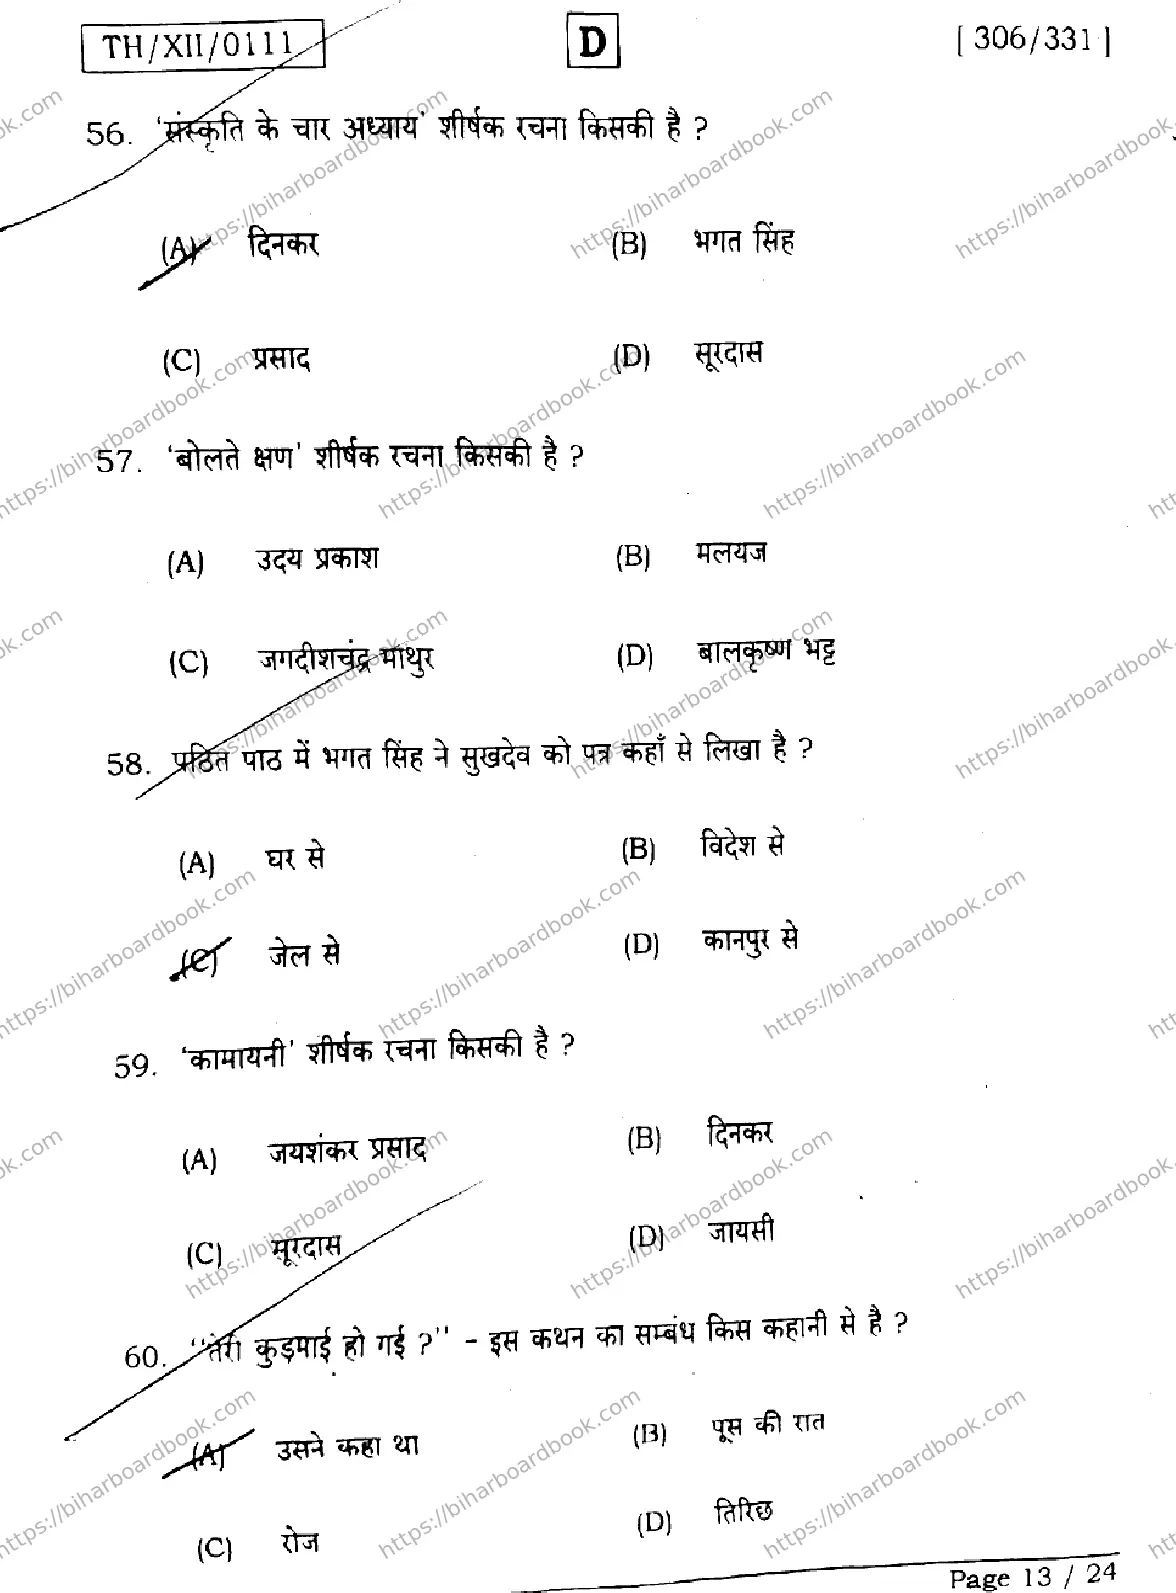 TH/XII/0111
D
[ 306/331 ]
56. 'संस्कृति के चार अध्याय' शीर्षक रचना किसकी है ?
(A) दिनकर (B) भगत सिंह
(C) प्रसाद (D) सूरदास
57. 'बोलते क्षण' शीर्षक रचना किसकी है ?
(A) उदय प्रकाश (B) मलयज
(C) जगदीशचंद्र माथुर (D) बालकृष्ण भट्ट
58. पठित पाठ में भगत सिंह ने सुखदेव को पत्र कहाँ से लिखा है ?
(A) घर से (B) विदेश से
(C) जेल से (D) कानपुर से
59. 'कामायनी' शीर्षक रचना किसकी है ?
(A) जयशंकर प्रसाद (B) दिनकर
(C) सूरदास (D) जायसी
60. "तेरी कुड़माई हो गई ?" - इस कथन का सम्बंध किस कहानी से है ?
(A) उसने कहा था (B) पूस की रात
(C) रोज (D) तिरिछ
Page 13 / 24
https://biharboardbook.com